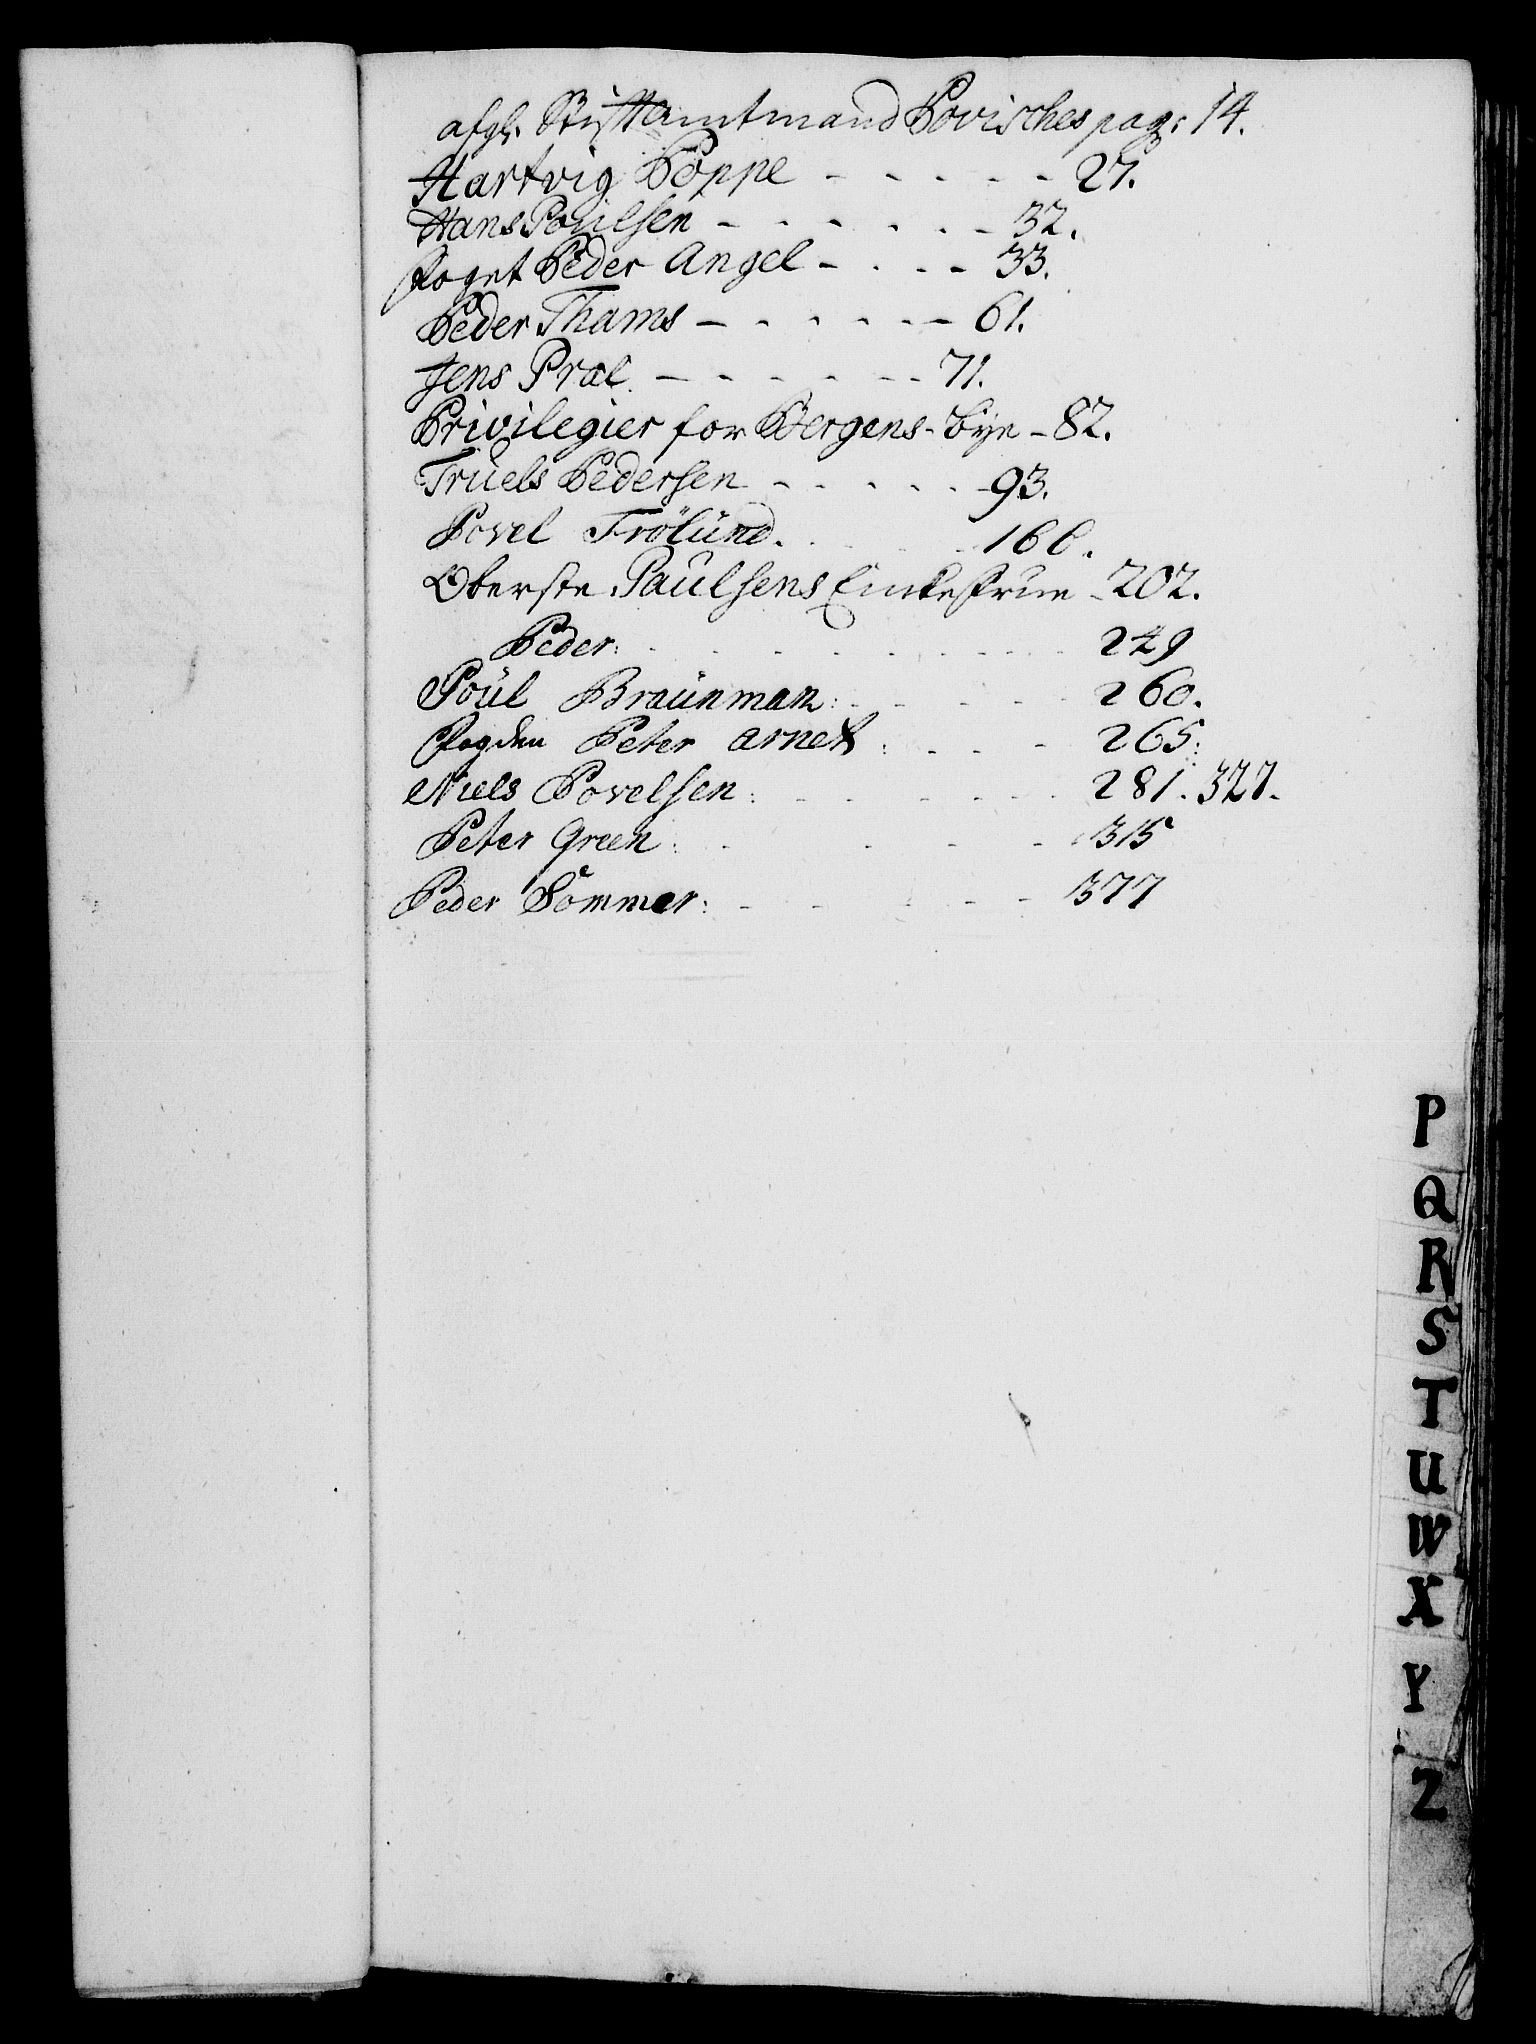 afg: Stiftamtmand Povisches pag: 14.
Hartvig Poppe - - - - - 27.
Hans Poulsen - - - - - - 32.
foget Peder Angel - - - - 33.
Peder Thams - - - - - - 61.
Jens Præl - - - - - - 71.
Privilegier for Bergens-bye - 82.
Truels Pedersen - - - - - 93.
Povel Frölund. - - -
Oberste Paulsens Enkefrue - 202.
Peder: - - - - - - - 249
Poül Braünman: - - - - 260.
Fogden Peter Arnet: - - - 265:
Niels Povelsen: - - - - - 281. 327.
Peter Green: - - - - 315
Peder Sommer: - - - - - 377
P
Q
R
S
T
U
W
X
Y
Z